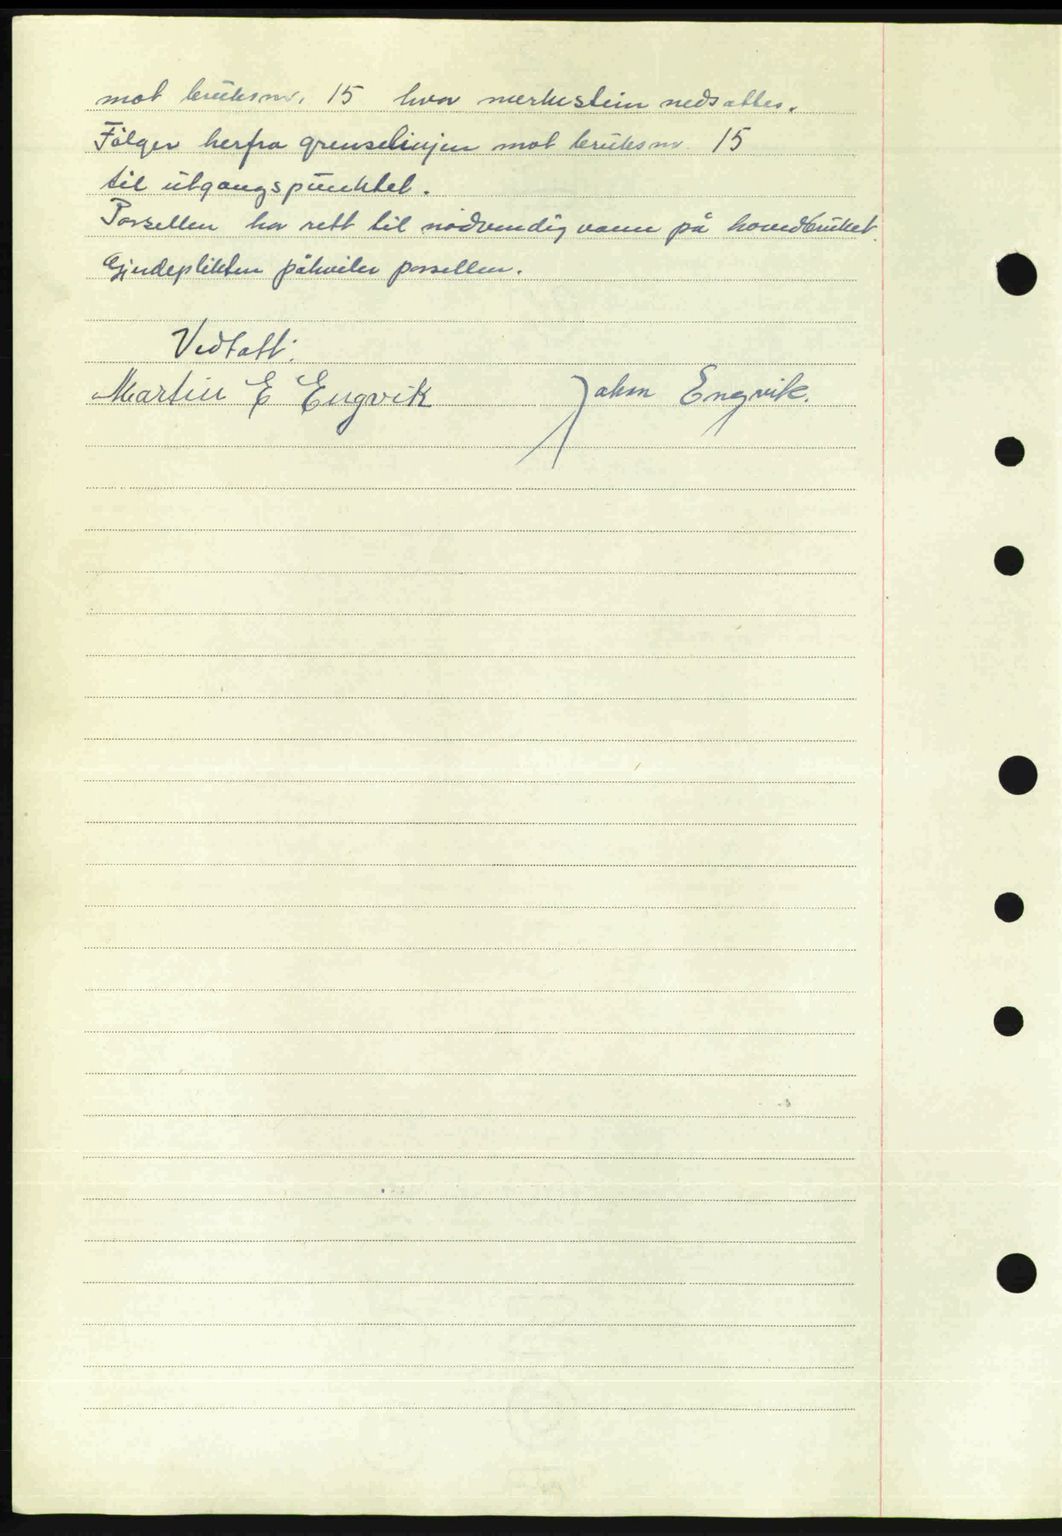 mot bruksnr. 15 hvor merkestein nedsattes.
Følger herfra grenselinjen mot bruksnr. 15
til utgangspunktet.
Parsellen har rett til nødvendig vann på hovedbruket.
Gjerdeplikten påhviler parsellen.
Vedtatt:
Martin E Engvik Johan Engvik.